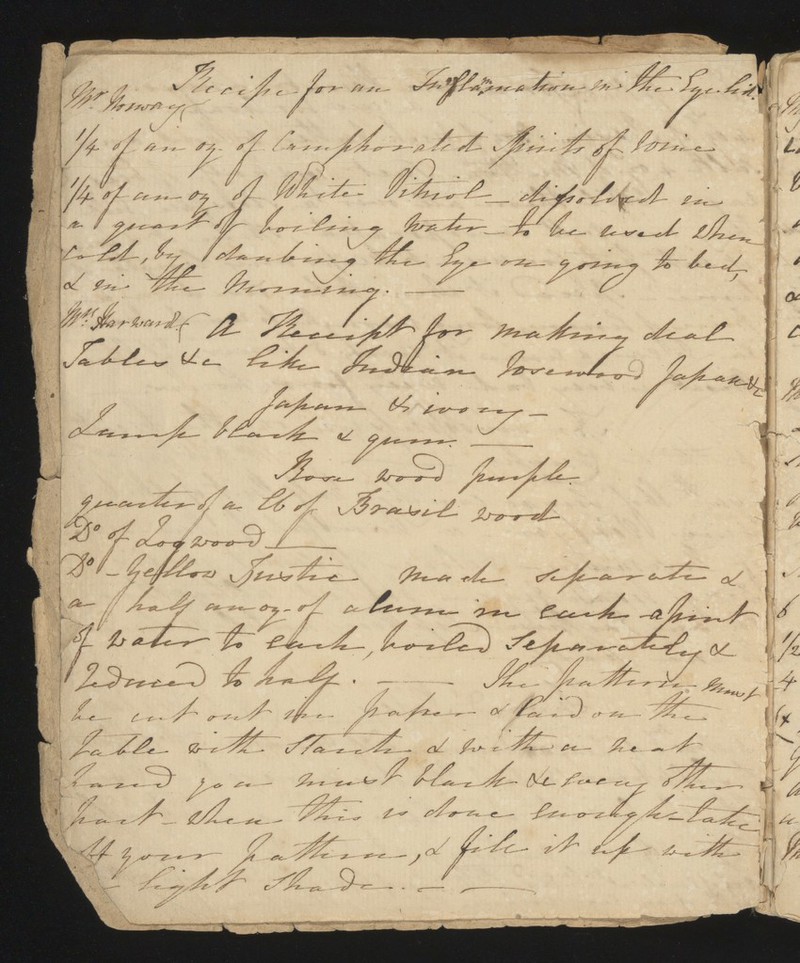 Recipe for an Inflamation in the Eye lid.
Mr. Norway
1/4 of an oz. of Camphorated Spirits of Wine
1/4 of an oz of White Vitriol - dissolved in
a quart of boiling Water - to be used when
cold, by daubing the Eye on going to bed,
& in the Morning. —
Mrs. Harward A Receipt for making deal
Tables &c like Indian rosewood Japan &c
Japan & ivory -
Lamp black & gum. —
Rose wood purple.
quarter of a lb of Brasil wood
Do of Logwood —
Do - Yellow Fustic made separate &
a half an oz. of alum in each a pint
of water to each, boiled Separately &
reduced to half. — The pattern must
be cut out in paper & laid on the
table with Starch & with a neat
hand you must black every other
part - when this is done enough - take
off your pattern, & fill it up with
light Shade. - —